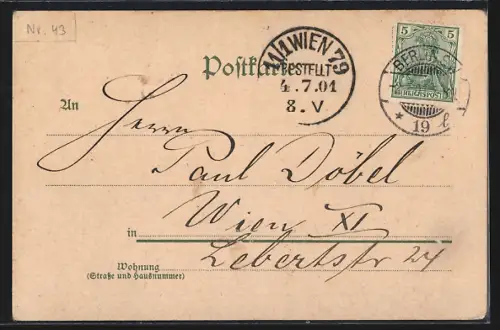 Nr. 43
Postkarte
11/1 WIEN 79
BESTELLT
4.7.01
8.V
5 5
REICHSPOST
BERLIN
* 19 b
An
Herrn
Paul Döbel
in Wien XI
Lebertstr 24
Wohnung
(Straße und Hausnummer)